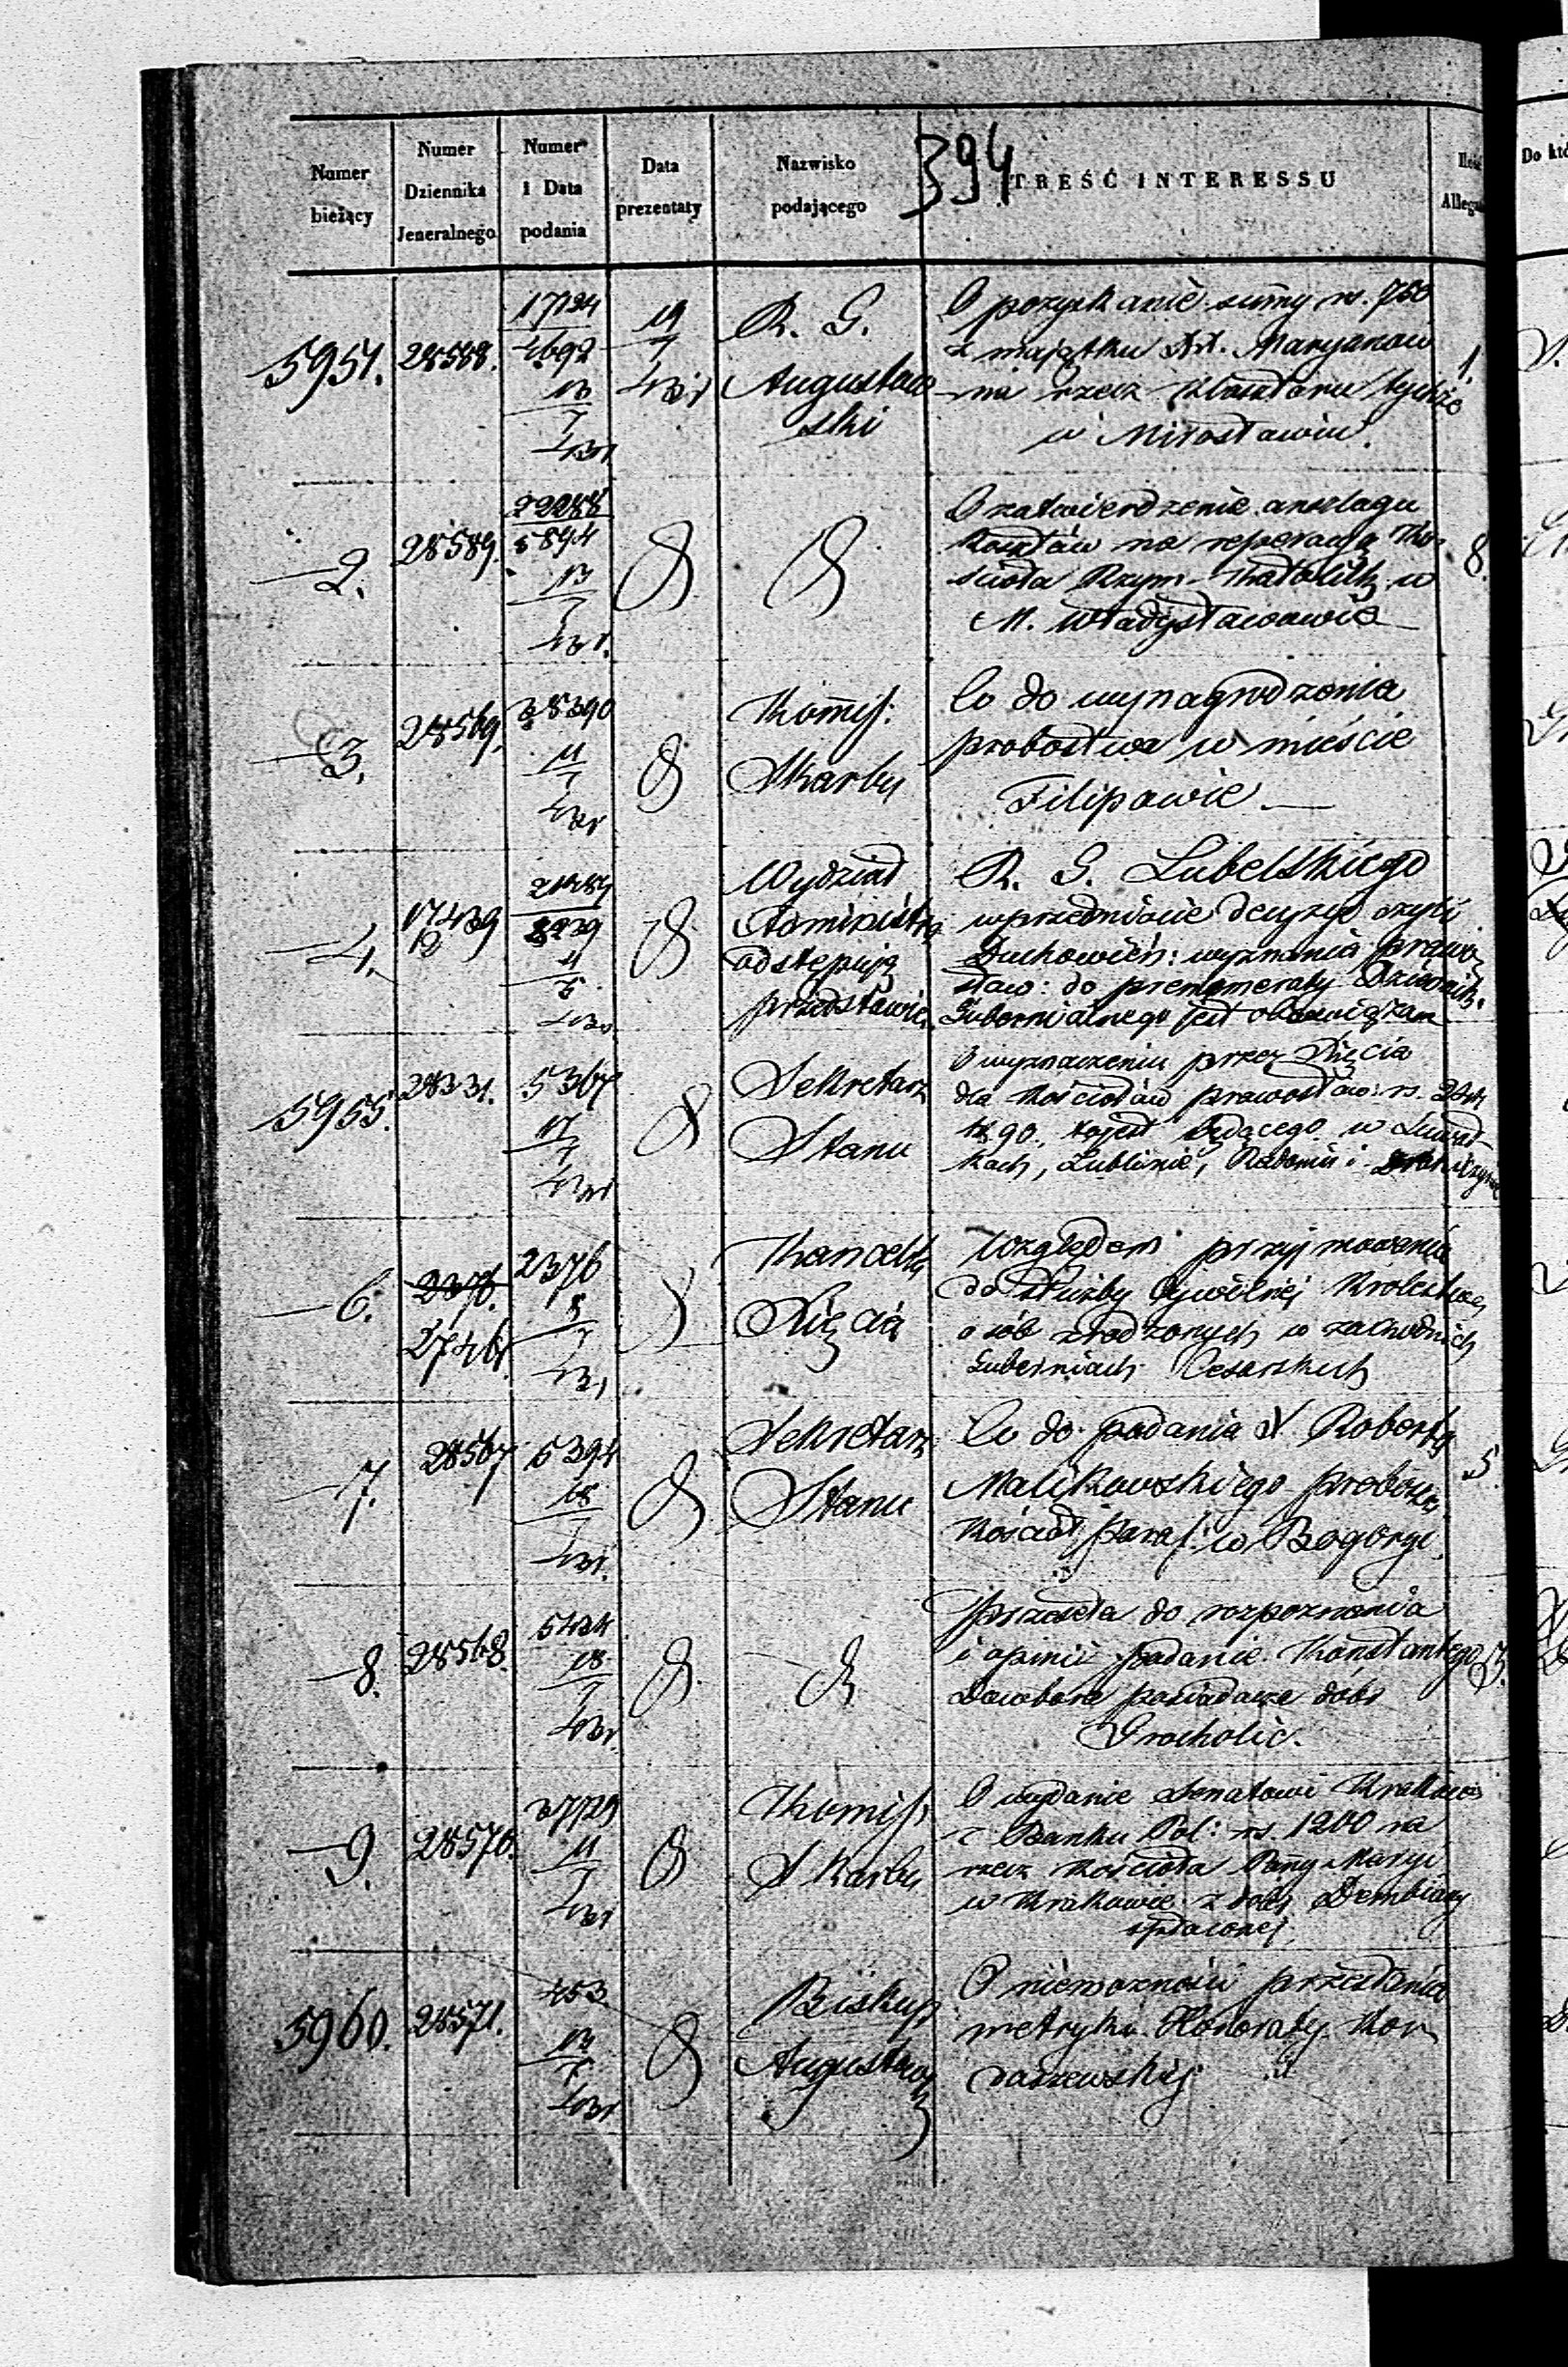 394
Numer bieżący
Numer Dziennika Jeneralnego
Numer i Data podania
Data prezentaty
Nazwisko podającego
TREŚĆ INTERESSU
Do któ
5951.
28588.
17124
4692
13
7
19
7
R. G.
Augustow
ski
O pozyskanie summy rs. 750
z majątku XX. Maryanów
na rzecz klasztoru tychże
w Mirosławiu.
1.
2.
28589.
22288
5894
13
7
O zatwierdzenie anszlagu
kosztów na reperacyą Ko-
ścioła Rzym-katolick w
M. Władysławowie
8.
3.
28569.
35390
11
7
Kommis:
Skarbu
Co do wynagrodzenia
probostwa w mieście
Filipowie
4.
17439
12
Wydział
Administra
odstępuje
przedstawie
R. G. Lubelskiego
w przedmiocie decyzyi czyli
Duchowień: wyznania prawo
sław: do prenumeraty Dziennik
Gubernialnego jest obowiązan
5955.
28331.
5367
17
7
Sekretarz
Stanu
O wyznaczeniu przez Xięcia
dla kościołów prawosław: rs.
k. 90.
kach, Lublinie, Radomiu i
6.
2376.
27461.
2376
8
7
Kancell
Xięcia
Względem przyjmowania
do służby cywilnej Królestwa
osób zrodzonych w zachodnich
Guberniach Cesarskich
7.
28567
5394
18
7
Sekretarz
Stanu
Co do podania X. Roberta
Malikowskiego probosz
kościoł paraf: w Bogoryi.
5.
8.
28568.
5424
18
7
Przesyła do rozpoznania
i opinii podanie Konstantego
Dowbora posiadacza dóbr
Grocholic.
3.
9.
28570.
37729
11
7
Kommis:
Skarbu
O wydanie Senatowi Krakow
z Banku Pol: rs. 1200 na
rzecz kościoła Panny Maryi
w Krakowie z dóbr Dembiany
spłaconej.
5960.
28571.
453
13
7
Biskup
Augustows
O niemożności przesłania
metryki Honoraty Kon
raszewskiej